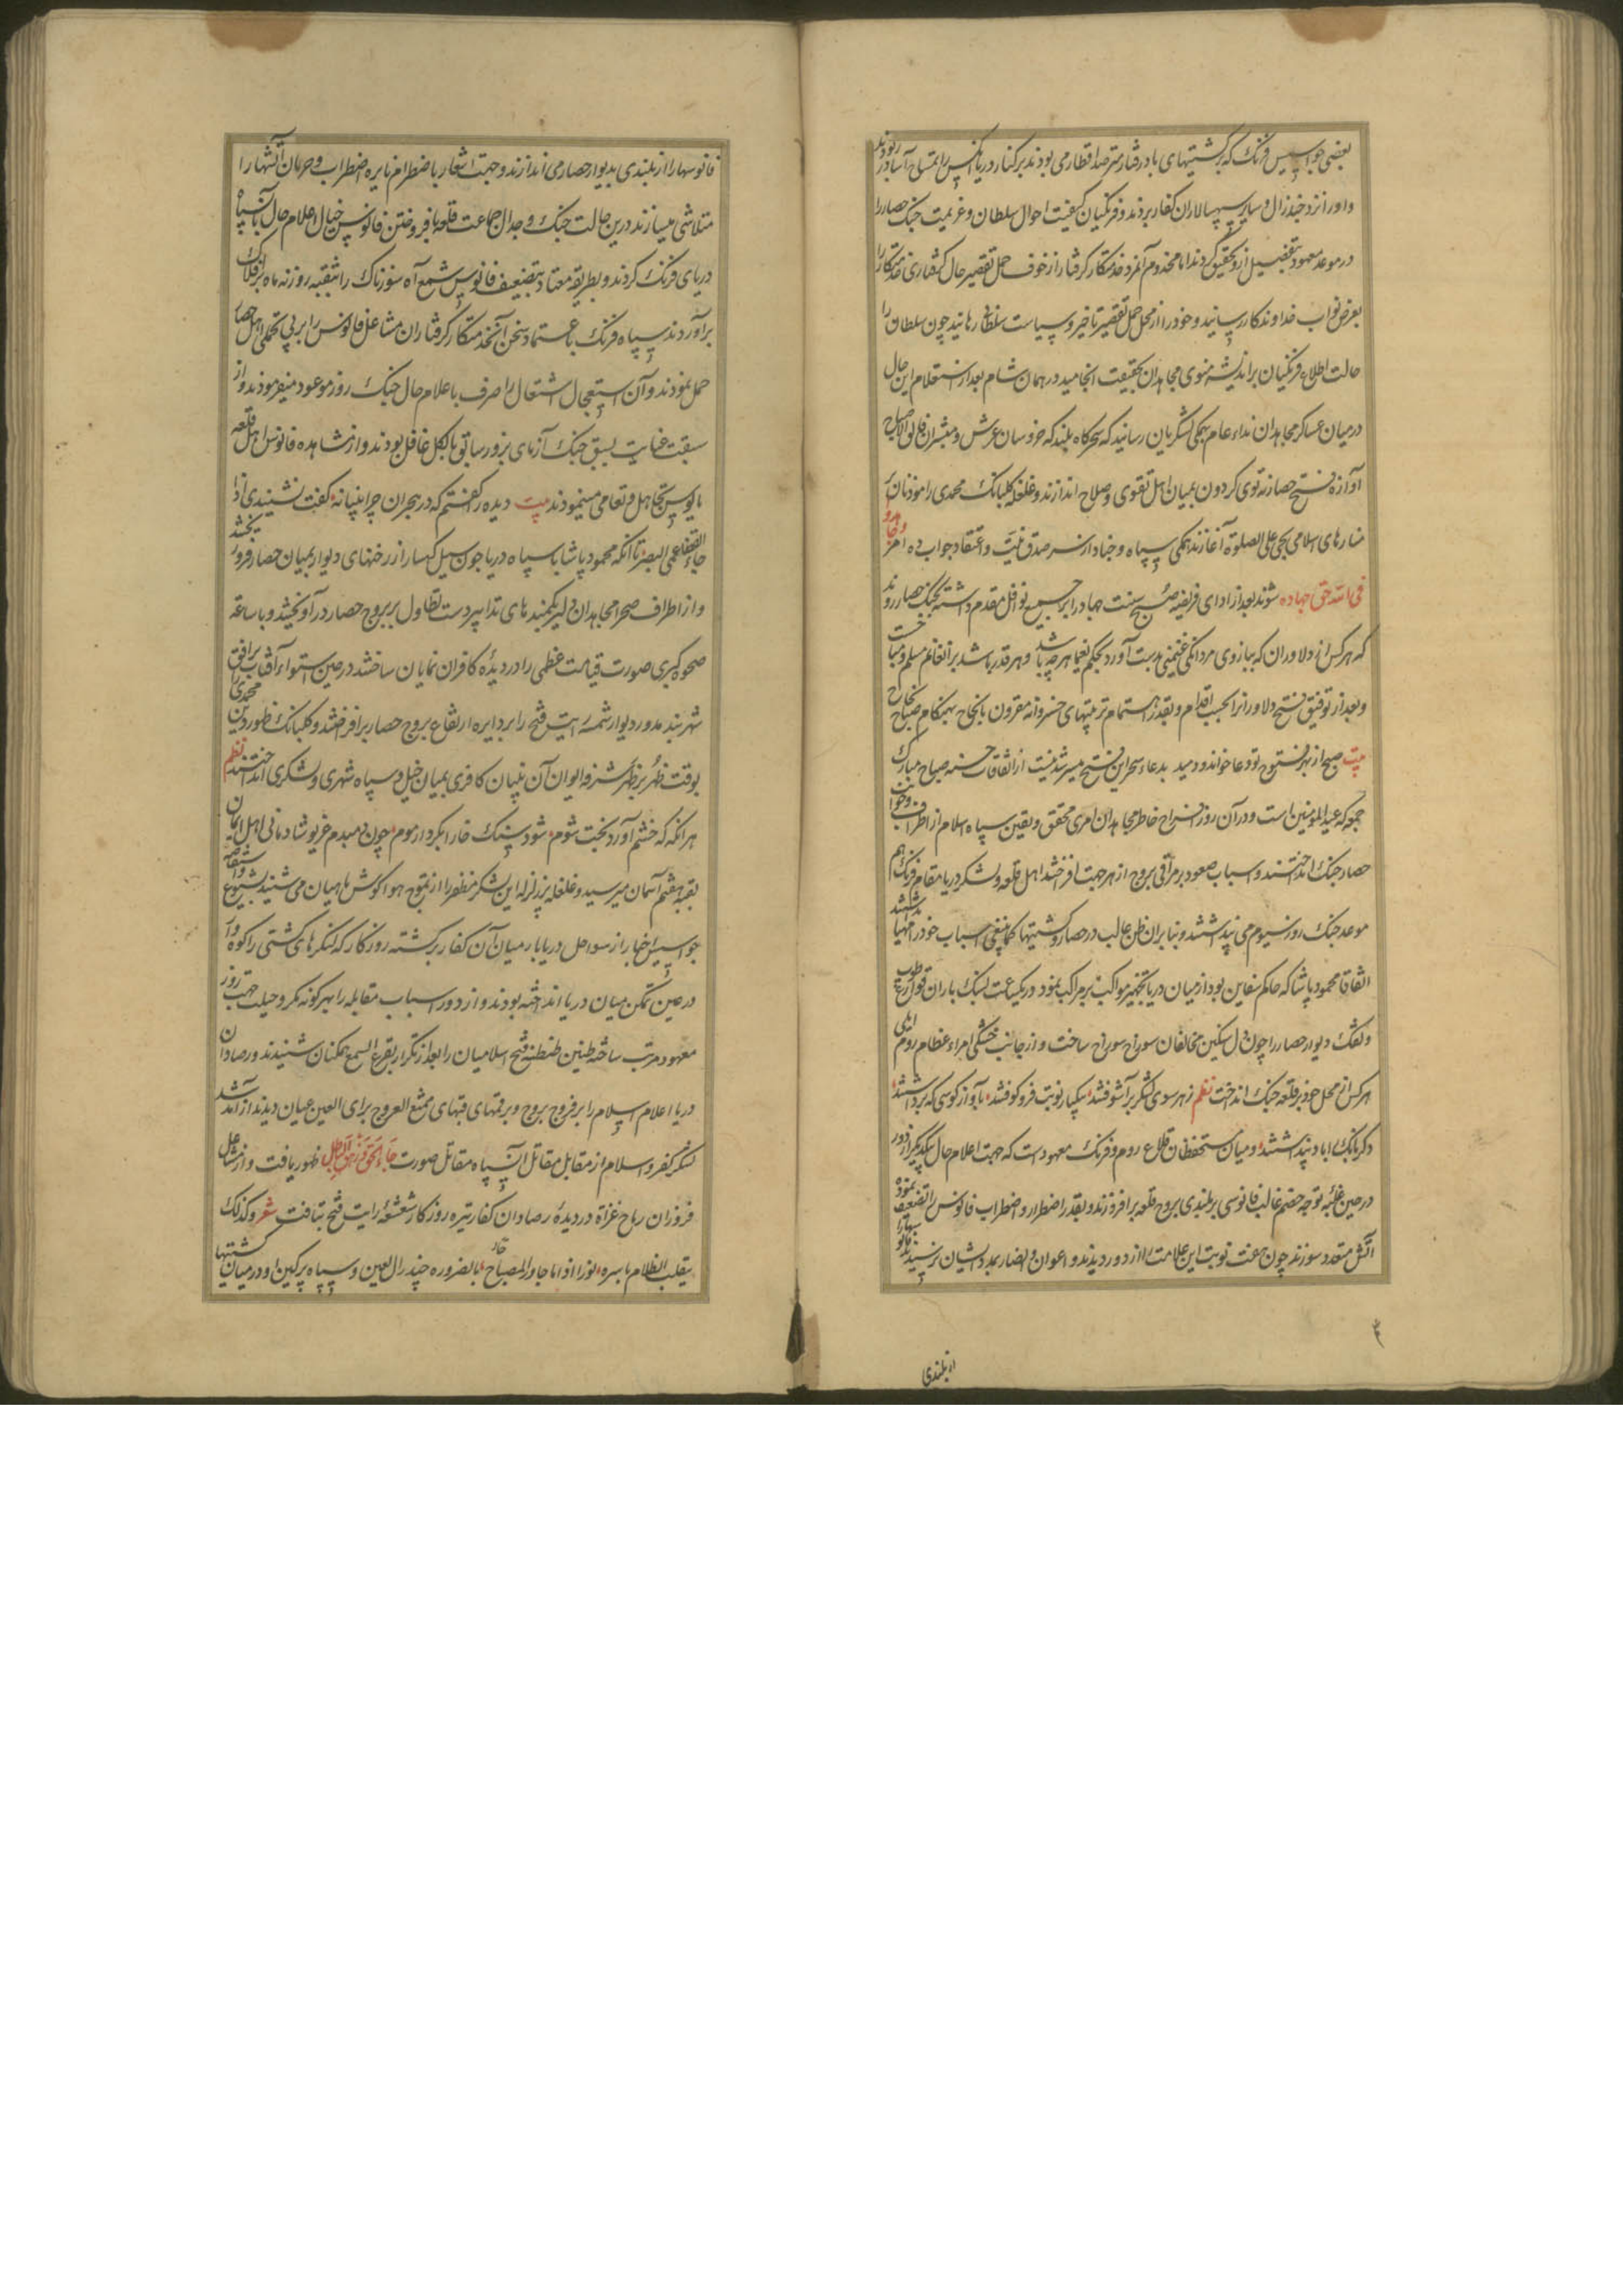 بعضی جواسیس فرنک که برکشتیهای باد رفتار مترصد اقطار می بودند بر کنار دریا
و اورا نزد جنذرال و سایر سپهسالاران کفار بردند و فرنکیان کیفیت احوال سلطان و عزیمت جنک حصار را
در موعد معهود بتفصیل ازو تحقیق کردند اما مخدوم آنمرد خدمتکار کرفتار از خوف حمل تقصیر حال کرفتاری خدمتکار را
بعرض نواب خداوندکار رسانید و خود را از محل حمل تقصیر تاخیر و سیاست سلطانی رهانید چون سلطان را
حالت اطلاع فرنکیان بر اندیشه منوی مجاهدان بحقیقت انجامید در همان شام بعد از استعلام این حال
در میان عساکر مجاهدان نداء عام بهمکی لشکریان رسانید که سحرکاه بلند که خروسان عرش و مبشران فالق الاصباح
آوازه فتح حصار نه توی کردون بمیان اهل تقوی و صلاح اندازند و غلغله کلبانک محمدی را موذنان بر
منارهای اسلامی بحی علی الصلوة آغازند همکی سپاه و جنادار از سر صدق نیت و اعتقاد جواب ده امر و جاهدوا
فی الله حق جهاده شوند بعد از ادای فریضه صبح سنت جهاد را بر جمیع نوافل مقدم داشته بجنک حصار روند
که هر کس از دلاوران که ببازوی مردانکی غنیمتی بدست آورد بحکم یغما هرچه باشد و هر قدر باشد بر آن غانم مسلم و مباحست
و بعد از توفیق فتح دلاورانرا بحسب اقدام و بقدر اهتمام تربیتهای خسروانه مقرون بانجاح بهنکام صباح نجاح
بیت صبح از بهر فتوح تو دعا خواند و دمید بدعاء سحر این فتح میسر شدنیست از اتفاقات حسنه صباح مبارک
جمعه که عید المومنین است و در آن روز انشراح خاطر مجاهدان امری محقق و یقین سپاه اسلام از اطراف و جوانب
حصار جنک انداختند و اسباب صعود بر مراقی بروج از هر جهت افراختند اهل قلعه و لشکر دریا مقام فرنک هم
موعد جنک روز سیوم می پنداشتند و بنا بر آن ظن غالب در حصار و کشتیها کما ینبغی اسباب خود را مهیا نداشتند
اتفاقا محمود پاشا که حاکم سفاین بود از میان دریا بتجهیز مواکب بر مراکب نمود و در یکساعت بسنک باران
و تفنک دیوار حصار را چون دل سنکین مخالفان سوراخ سوراخ ساخت و از جانب خشکی امراء عظام روم ایلی
هر کس از محل خود بر قلعه جنک انداخت نظم ز هر سوی لشکر بر آشوفتند بیکبار نوبت فرو کوفتند باواز کوسی که برداشتند
دکر بانک ابا دنپداشتند و میان مستحفظان قلاع روم و فرنک معهود است که جهت اعلام حال یکدیکر از دور
در حین غلبه توجه خصم غالب فانوسی بر بلندی بروج قلعه برافروزند و بقدر اضطرار و اضطراب فانوس را تضعیف نموده
آتش متعدد سوزند چون جماعت نوبت این علامت را از دور دیدند و اعوان و انصار بمدد ایشان برسند فانوسها را
از بلندی
فانوسها را از بلندی بدیوار حصار می اندازند و جهت اشعار باضطرام نایره اضطراب و حرمان آتشها را
متلاشی میسازند درین حالت جنک و جدال جماعت قلعه بافروختن فانوس خیال اعلام حال با سپاه
دریای فرنک کردند و بطریقه معتاد بتضعیف فانوس شمع آه سوزناک را بثقبه روزنه ماه بر فلک
برآوردند سپاه فرنک باعتماد سخن آنخدمتکار کرفتار آن مشاعل فانوس را بر بی تحملی اهل حصار
حمل نمودند و آن استعجال اشتعال را صرف باعلام حال جنک روز موعود میفرمودند و از
سبقت عنایت بسبق جنک آزمای بروز سابق بالکل غافل بودند و از مشاهده فانوس اهل قلعه
مایوس تجاهل و تعامی مینمودند بیت دیده را کفتم که در هجران چرا بینیانه کفت نشنیدی اذا
جاء القضا عمی البصر تا آنکه محمود پاشا با سپاه دریا چون سیل کهسار از رخنهای دیوار بمیان حصار فرو ریختند
و از اطراف صحرا مجاهدان دلیر بکمندهای تدابیر دست تطاول ببروج حصار در آویختند و با ساعقه
ضحوه کبری صورت قیامت عظمی را در دیده کافران نمایان ساختند در حین استواء آفتاب بر افق
شهر بند مدور دیوار شمسه رایت فتح را بر دایره ارتفاع بروج حصار برافراختند و کلبانک ظهور دین محمدی را
بوقت ظهر بر ظهر شرفه ایوان آن بنیان کافری بمیان خیل و سپاه شهری و لشکری انداختند نظم
هر آنکه که خشم آورد بخت شوم شود سنک خارا بکردار موم چون دمبدم غریو شادمانی اهل ایمان
بقبه هفتم آسمان میرسید و غلغله پر زلزله این لشکر مظفر را از تموج هوا کوش ماهیان می شنید بشیوع
جواسیس اخبار از سواحل دریا بار میان آن کفار برکشته روزکار که لنکرهای کشتی را کوه وار
در حین تمکن میان دریا انداخته بودند و از دور اسباب مقابله را بهر کونه مکر و حیلت جهت روز
معهود مرتب ساخته طنین طنطنه فتح اسلامیان را بعد از تکرار بقرع السمع همکنان شنیدند و رصادان
دریا اعلام اسلام را بر فروج بروج و بر قمتهای قبهای ممتنع العروج برای العین عیان دیدند از آمد شد
لشکر کفر و اسلام از مقابل مقاتل آن سپاه مقاتل صورت جاء الحق و زهق الباطل ظهور یافت و از مشاعل
فروزان رماح غزاة در دیده رصادان کفار تیره روزکار شعشعه رایت فتح بتافت شعر و کذلک
ینقلب الظلام باسره نورا اذا ما جاور المصباح بالضروره جنذرال لعین و سپاه پر کین او در میان کشتیها